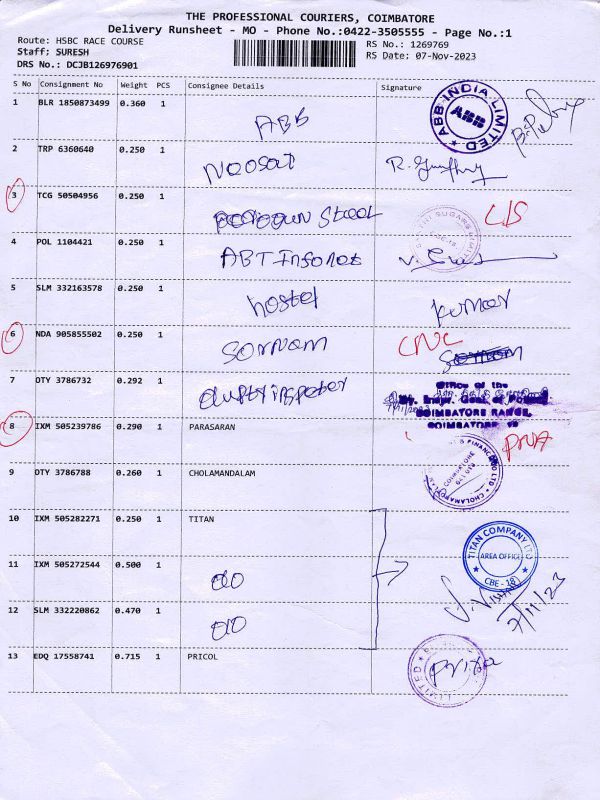 THE PROFESSIONAL COURIERS, COIMBATORE
Delivery Runsheet - MO - Phone No.:0422-3505555 - Page No.:1
Route: HSBC RACE COURSE
Staff: SURESH
DRS No.: DCJB126976901
RS No.: 1269769
RS Date: 07-Nov-2023
S No Consignment No Weight PCS Consignee Details Signature
1 BLR 1850873499 0.360 1 ABB
ABB INDIA LIMITED
ABB
2 TRP 6360640 0.250 1 Neosat
3 TCG 50504956 0.250 1 Steel L/S
4 POL 1104421 0.250 1 ABT Infonet
5 SLM 332163578 0.250 1 hostel kumar
6 NDA 905855502 0.250 1 Sornam CNC
Sornam
7 DTY 3786732 0.292 1
Office of the
COIMBATORE RANGE,
COIMBATORE 18
8 IXM 505239786 0.290 1 PARASARAN PNA
9 DTY 3786788 0.260 1 CHOLAMANDALAM
COIMBATORE
10 IXM 505282271 0.250 1 TITAN
TITAN COMPANY LTD
AREA OFFICE
CBE - 18
11 IXM 505272544 0.500 1 do
12 SLM 332220862 0.470 1 do
7/11/23
13 EDQ 17558741 0.715 1 PRICOL
LIMITED